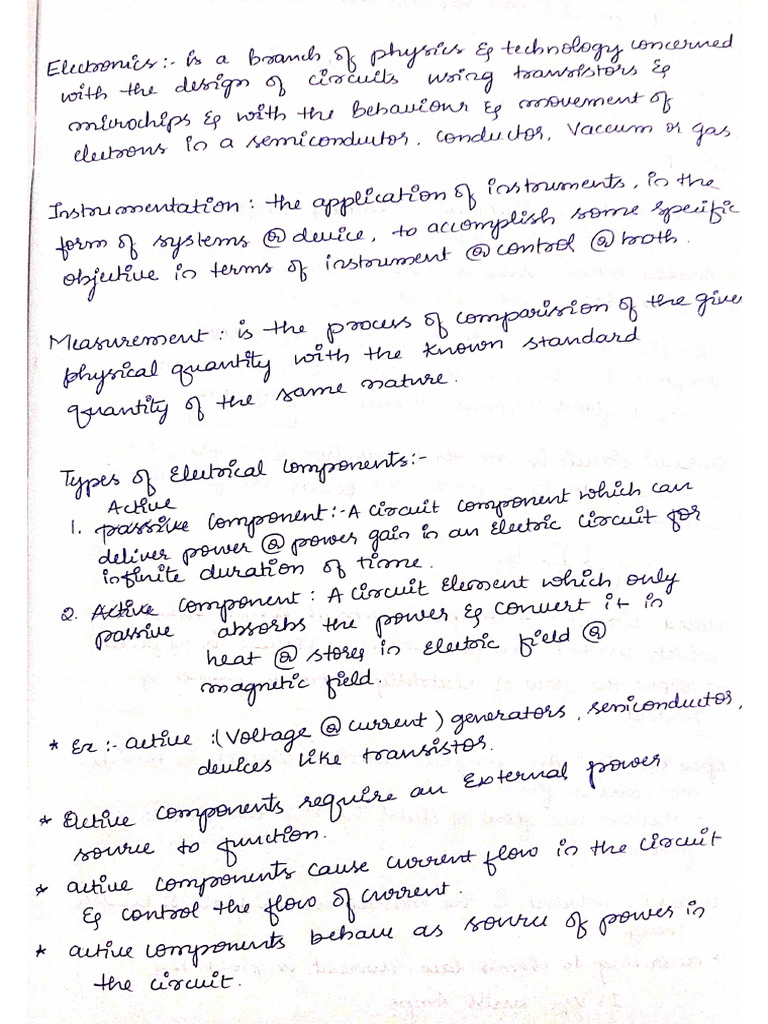 Electronics:- is a branch of physics & technology concerned
with the design of circuits using transistors &
microchips & with the behaviour & movement of
electrons in a semiconductor, conductor, Vaccum or gas
Instrumentation : the application of instruments, in the
form of systems @ device, to accomplish some specific
objective in terms of instrument @ control @ both.
Measurement : is the process of comparision of the given
physical quantity with the known standard
quantity of the same nature.
Types of Electrical components:-
Active
1. passive component:- A circuit component which can
deliver power @ power gain in an electric circuit for
infinite duration of time.
2. Active component : A circuit Element which only
passive absorbs the power & convert it in
heat @ stores in electric field @
magnetic field.
* Ex:- active :(Voltage @ current) generators, semiconductor,
devices like transistor.
* Active components require an external power
source to function.
* active components cause current flow in the circuit
& control the flow of current.
* active components behave as source of power in
the circuit.